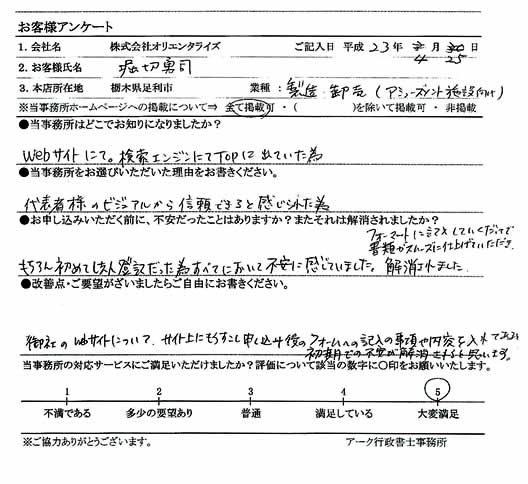 お客様アンケート
1. 会社名 株式会社オリエンタライズ ご記入日 平成23年4月25日
2. お客様氏名 堀切勇司
3. 本店所在地 栃木県足利市 業種：製造 卸売(アミューズメント施設向け)
※当事務所ホームページへの掲載について⇒ 全て掲載可・( )を除いて掲載可・非掲載
●当事務所はどこでお知りになりましたか？
Webサイトにて。検索エンジンにてTOPに出ていた為
●当事務所をお選びいただいた理由をお書きください。
代表者様のビジュアルから信頼できると感じられた為
●お申し込みいただく前に、不安だったことはありますか？またそれは解消されましたか？
フォーマットに記入していくだけで
書類がスムーズに仕上げていただき
もちろん初めての法人登記だった為すべてにおいて不安に感じていました。解消されました。
●改善点・ご要望がざいましたらご自由にお書きください。
御社のWebサイトについて、サイト上にもう少し申し込み後のフォームへの記入の事項や内容を入れて
初期での不安が解消すると思います。
当事務所の対応サービスにご満足いただけましたか？評価について該当の数字に〇印をお願いいたします。
1 2 3 4 5
不満である 多少の要望あり 普通 満足している 大変満足
※ご協力ありがとうございます。 アーク行政書士事務所